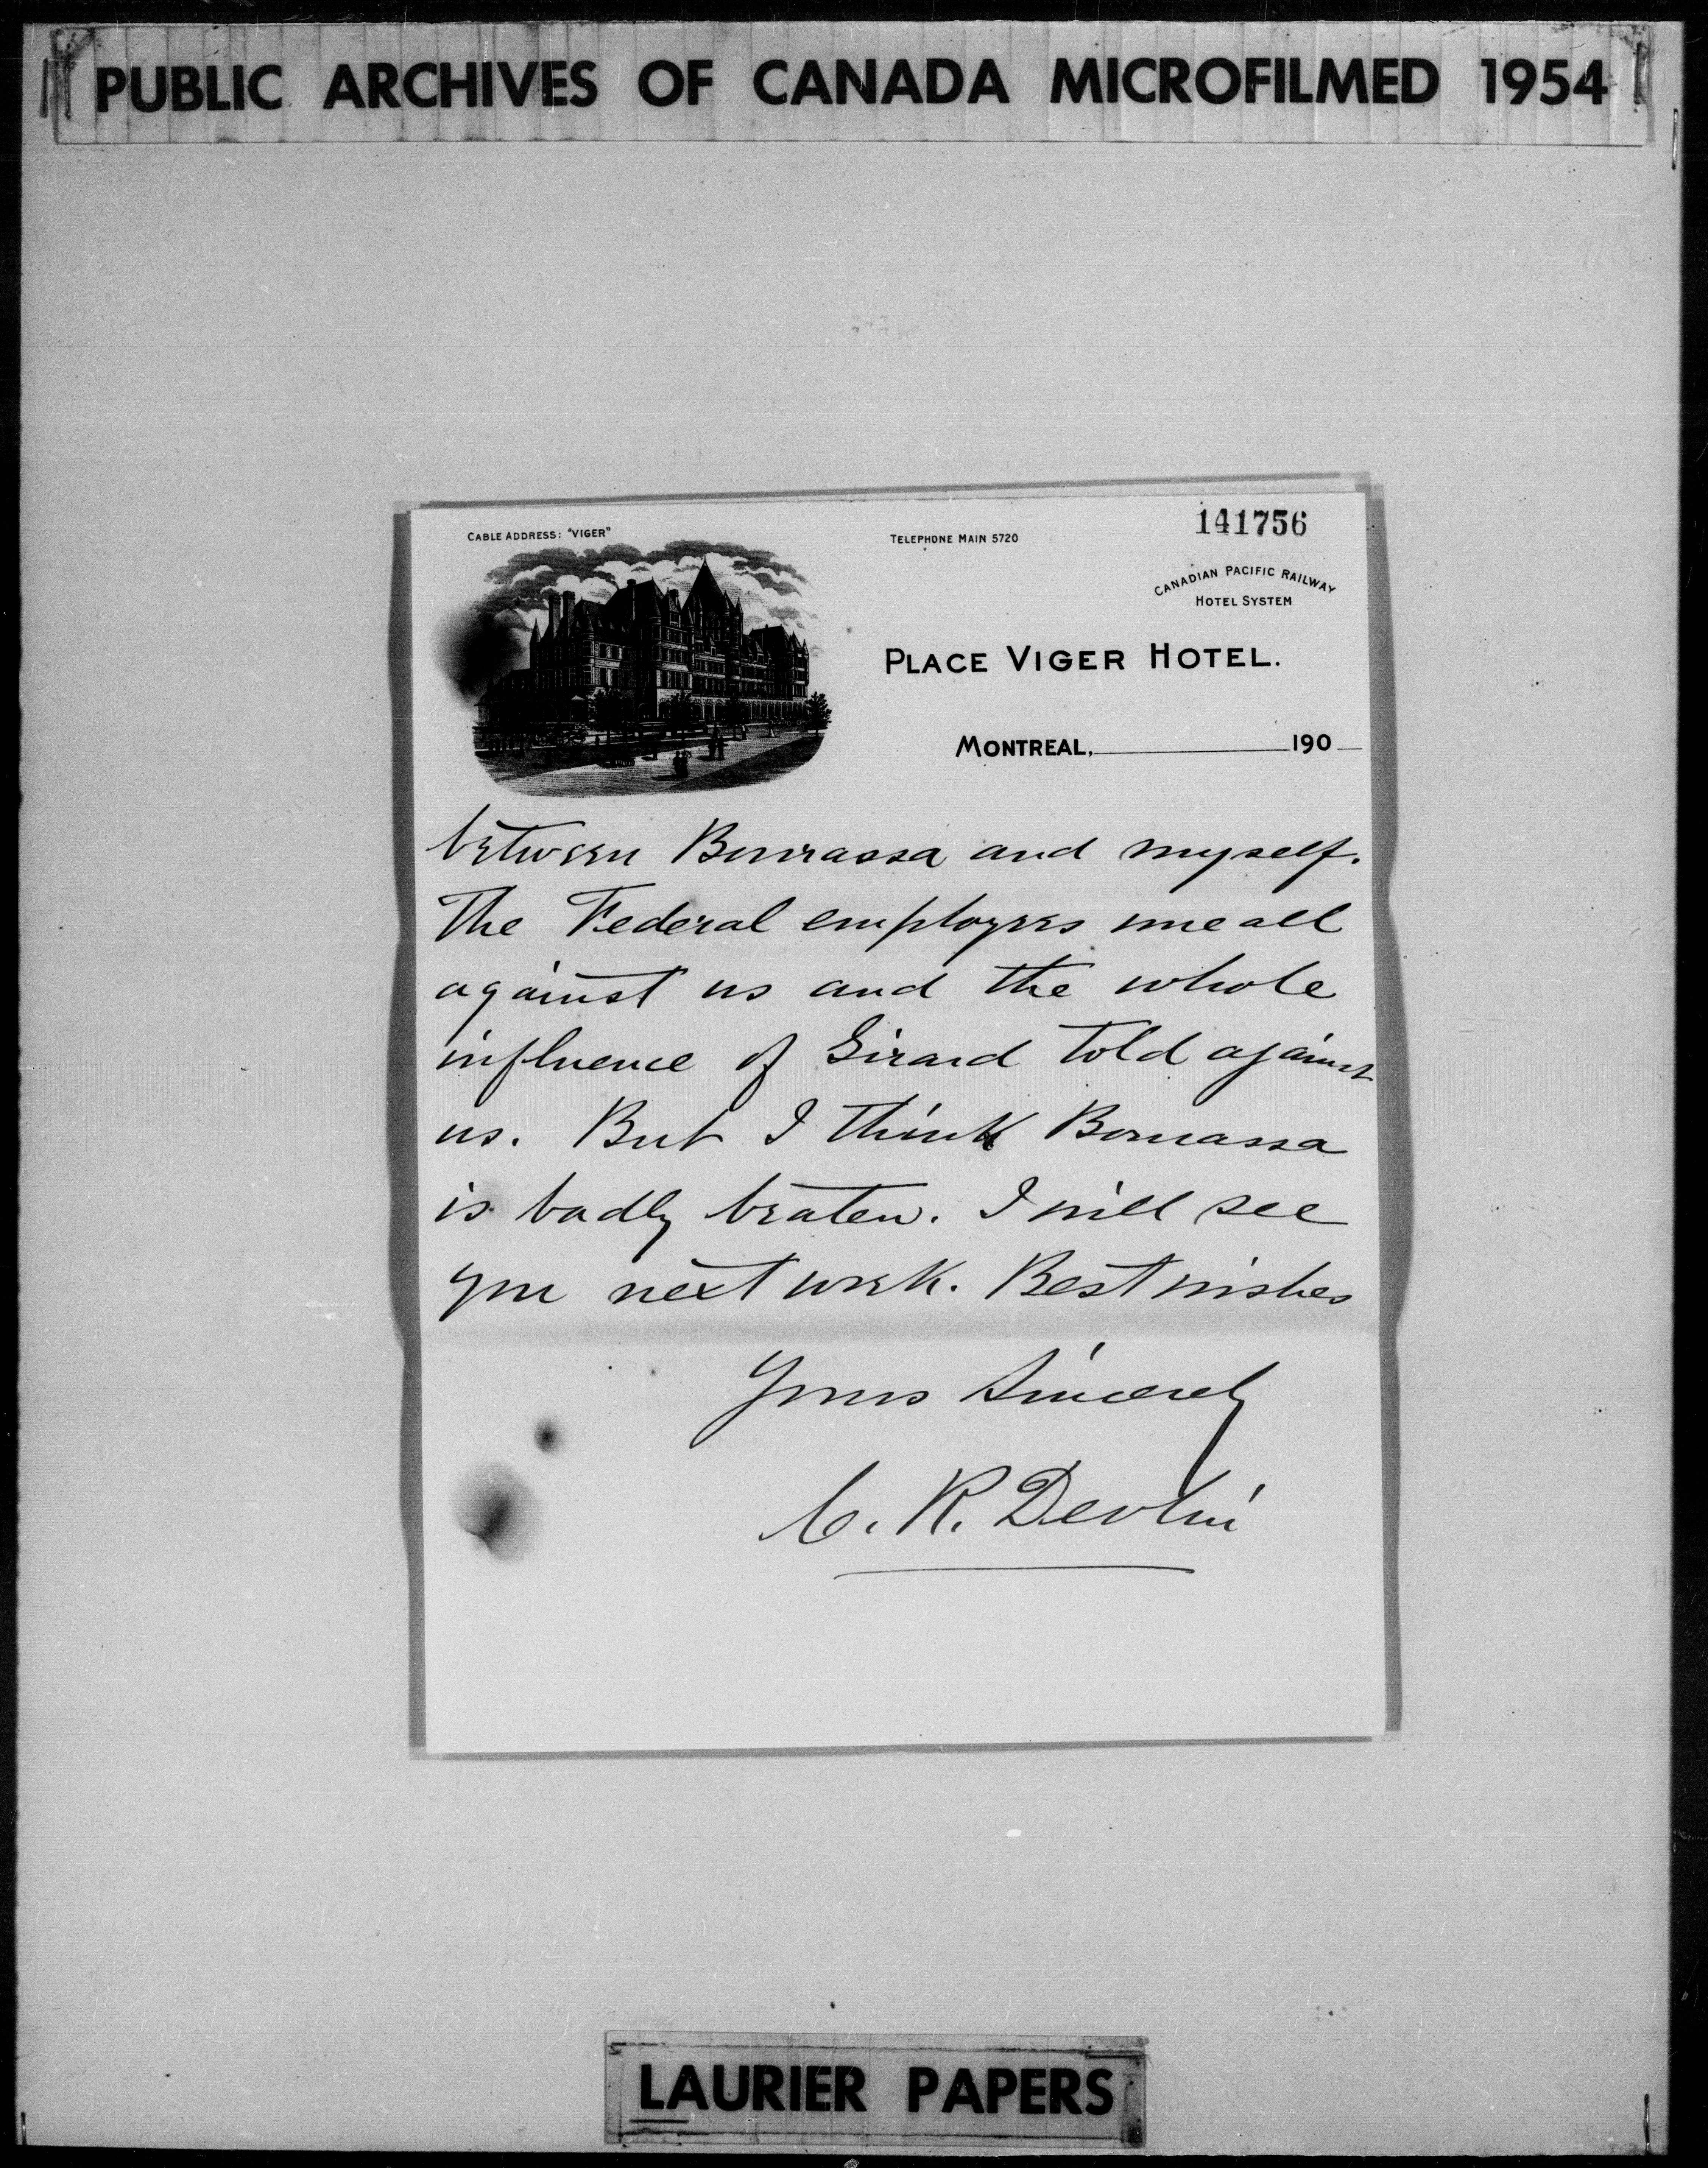 PUBLIC ARCHIVES OF CANADA MICROFILMED 1954
141756
CABLE ADDRESS: "VIGER"
TELEPHONE MAIN 5720
CANADIAN PACIFIC RAILWAY
HOTEL SYSTEM
PLACE VIGER HOTEL.
MONTREAL, 190
between Bourassa and myself.
The Federal employees were all
against us and the whole
influence of Girard told against
us. But I think Bourassa
is badly beaten. I will see
you next week. Best wishes
Yours Sincerely
C. R. Devlin
LAURIER PAPERS